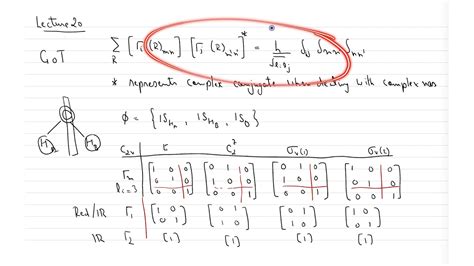 Lecture 20
GoT ∑_R [Γi (R)mn] [Γj (R)m'n']* = h/√(li lj) δij δmm' δnn'
* represents complex conjugate when dealing with complex nos
Φ = {1S_HA, 1S_HB, 1S_O}
H_A H_B
C2v E C2^z σv(1) σv(2)
Γn [1 0 0 [0 1 0 [0 1 0 [1 0 0
li=3 0 1 0 1 0 0 1 0 0 0 1 0
0 0 1] 0 0 1] 0 0 1] 0 0 1]
Red/IR Γ1 [1 0 [0 1 [0 1 [1 0
0 1] 1 0] 1 0] 0 1]
IR Γ2 [1] [1] [1] [1]